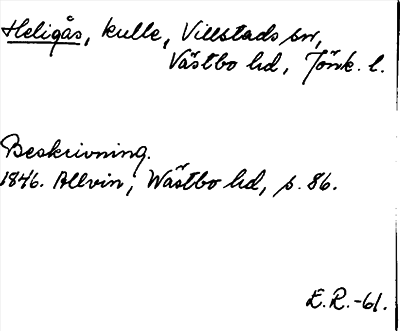 Heligås, kulle, Villstads sn,
Västbo hd, Jönk. l.
Beskrivning.
1846. Allvin, Wästbo hd, s. 86.
E.R.-61.